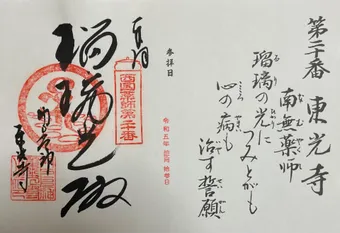 第二十番 東光寺
南無薬師
瑠璃の光に
つみとがも
心の病も
治す誓願
参拝日
令和五年
奉拝
西國薬師第二十番
瑠璃光殿
東光寺